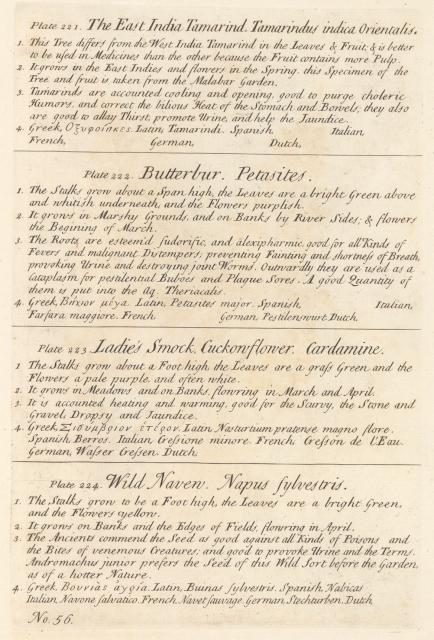 Plate 221. The East India Tamarind. Tamarindus indica Orientalis.
1. This Tree differs from the West India Tamarind in the Leaves & Fruit; & is better
to be uſed in Medicines than the other because the Fruit contains more Pulp.
2. It grows in the East Indies and flowers in the Spring. this Specimen of the
Tree and fruit is taken from the Malabar Garden.
3. Tamarinds are accounted cooling and opening, good to purge choleric
Humors, and correct the bilious Heat of the Stomach and Bowels; they also
are good to allay Thirst, promote Urine, and help the Jaundice.
4. Greek, Οξυφοίνικες. Latin, Tamarindi. Spanish Italian
French, German, Dutch,
Plate 222. Butterbur. Petasites.
1. The Stalks grow about a Span high, the Leaves are a bright Green above
and whitish underneath, and the Flowers purplish.
2. It grows in Marshy Grounds, and on Banks by River Sides; & flowers
the Begining of March.
3. The Roots are esteem'd ſudorific, and alexipharmic, good for all Kinds of
Fevers and malignant Distempers; preventing Fainting and shortneſs of Breath,
provoking Urine and destroying joint Worms. Outwardly they are used as a
Cataplaſm for pestilential Buboes and Plague Sores. A good Quantity of
them is put into the Aq. Theriacalis.
4. Greek, Βίχιον μέγα. Latin, Petasites major. Spanish, Italian,
Farfara maggiore. French, German, Pestilenswurt. Dutch,
Plate 223. Ladie's Smock, Cuckowflower. Cardamine.
1 The Stalks grow about a Foot high, the Leaves are a graſs Green, and the
Flowers a pale purple, and often white.
2. It grows in Meadows and on Banks, flowring in March and April.
3. It is accounted heating and warming, good for the Scurvy, the Stone and
Gravel, Dropsy and Jaundice.
4. Greek, Σισυμβριον ἑτέρον. Latin, Nasturtium pratense magno flore.
Spanish, Berros. Italian, Creſsione minore. French, Creſson de l'Eau.
German, Waſser Creſsen. Dutch,
Plate 224. Wild Navew. Napus ſylvestris.
1. The Stalks grow to be a Foot high, the Leaves are a bright Green,
and the Flowers yellow.
2. It grows on Banks and the Edges of Fields, flowring in April.
3. The Ancients commend the Seed as good against all Kinds of Poisons and
the Bites of venemous Creatures; and good to provoke Urine and the Terms.
Andromachus junior prefers the Seed of this Wild Sort before the Garden,
as of a hotter Nature.
4. Greek, Βουνιὰς ἀγρία. Latin, Bunias ſylvestris. Spanish, Nabicas
Italian, Navone ſalvatico. French, Navet ſauvage. German, Stechturben. Dutch,
No. 56.